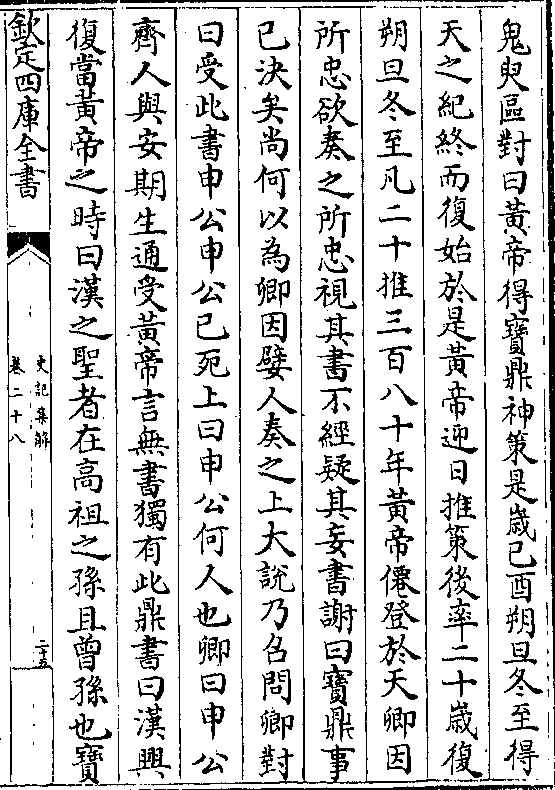 鬼臾區對曰黃帝得寶鼎神策是歲己酉朔旦冬至得
天之紀終而復始於是黃帝迎日推策後率二十歲復
朔旦冬至凡二十推三百八十年黃帝僊登於天卿因
所忠欲奏之所忠視其書不經疑其妄書謝曰寶鼎事
已決矣尚何以為卿因嬖人奏之上大說乃召問卿對
曰受此書申公申公已死上曰申公何人也卿曰申公
齊人與安期生通受黃帝言無書獨有此鼎書曰漢興
復當黃帝之時曰漢之聖者在高祖之孫且曾孫也寶
欽定四庫全書
史記集解
卷二十八
二十五